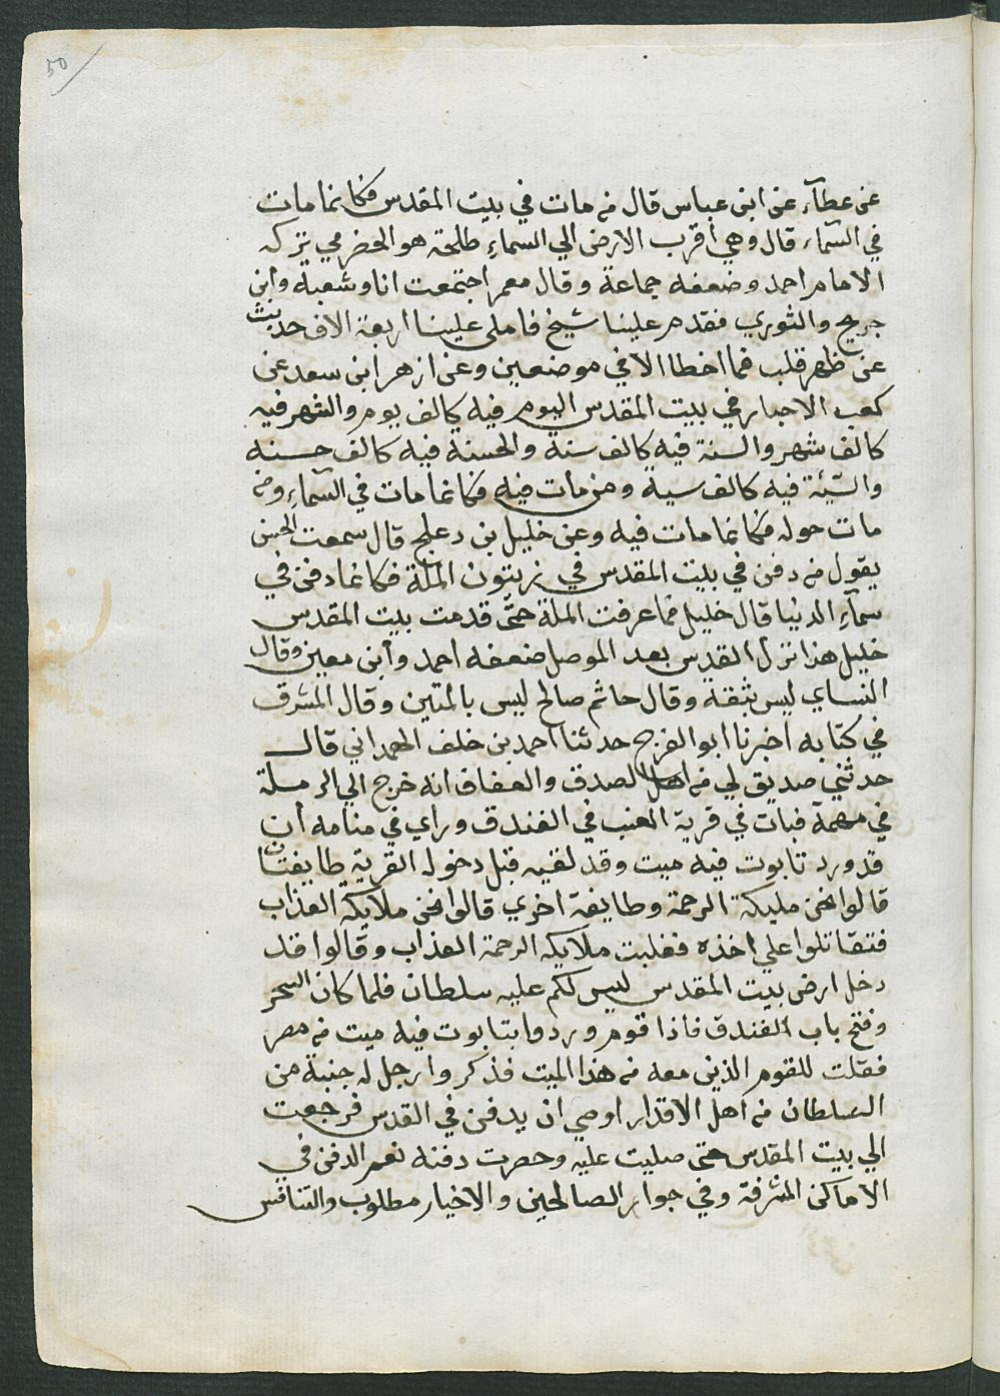 50
عن عطآء عن ابن عباس قال من مات في بيت المقدس فكانما مات
في السمآء قال وهي أقرب الارض الي السماءِ طلحة هو الحضرمي تركه
الامام احمد وضعفه جماعة وقال معمر اجتمعت انا وشعبة وابن
جريج والثوري فقدم علينا شيخ فاملى علينا اربعة الاف حديث
عن ظهر قلب فما اخطا الا في موضعين وعن ازهر ابن سعد عن
كعب الاحبار في بيت المقدس اليوم فيه كالف يوم والشهر فيه
كالف شهر والسنة فيه كالف سنة والحسنة فيه كالف حسنه
والسّيئة فيه كالف سية ومن مات فيه فكانما مات في السمآءِ ومن
مات حوله فكانما مات فيه وعن خليل بن دعلج قال سمعت الحسن
يقول من دفن في بيت المقدس في زيتون الملة فكانما دفن في
سمآءِ الدنيا قال خليل فما عرفت الملة حتّى قدمت بيت المقدس
خليل هذا نزل القدس بعد الموصل ضعفه احمد وابن معين وقال
النساي ليس بثقة وقال حاتم صالح ليس بالمتين وقال المشرف
في كتابه اخبرنا ابو الفرج حدثنا احمد بن خلف الهمداني قال
حدثني صديق لي من اهل الصدق والعفاف انه خرج الي الرملة
في مهمة فبات في قرية العنب في الفندق وراي في منامه أن
قد ورد تابوت فيه ميت وقد لقيه قبل دخوله القرية طايفتان
قالوا نحن مليكة الرحمة وطايفة اخري قالوا نحن ملايكة العذاب
فتقاتلوا علي اخذه فغلبت ملايكه الرحمة العذاب وقالوا قد
دخل ارض بيت المقدس ليس لكم عليه سلطان فلما كان السحر
وفتح باب الفندق فاذا قوم وردوا بتابوت فيه ميت من مصر
فقلت للقوم الذين معه من هذا الميت فذكروا رجل له جنبة من
السلطان من اهل الاقدار اوصي ان يدفن في القدس فرجعت
الي بيت المقدس حتى صليت عليه وحضرت دفنه نعم الدفن في
الاماكن المشرفة وفي جوار الصالحين والاخيار مطلوب والتنافس